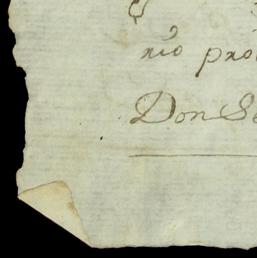 nio pro
Don Se